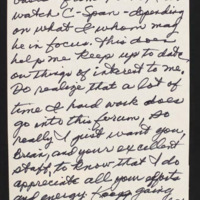 watch C-Span - depending
on what & whom may
be in focus. This does
help me keep up to date
on things of interest to me.
Do realize that a lot of
time & hard work does
go into this forum, so
really I just want you,
Brian, and your excellent
staff, to know that I do
appreciate all your efforts
and energy. Keep going